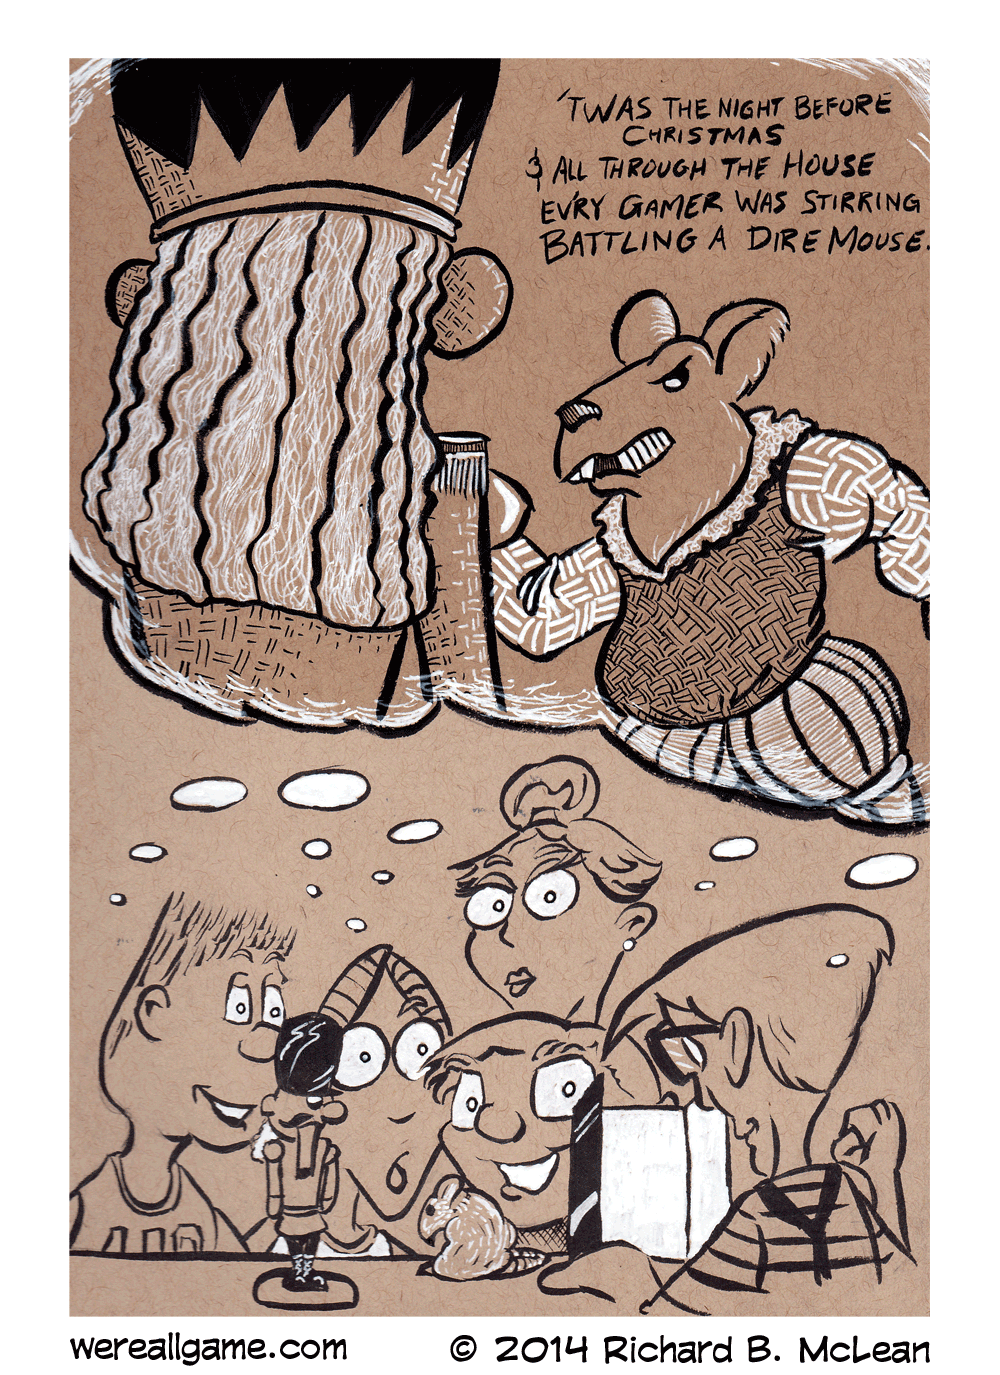 'TWAS THE NIGHT BEFORE
CHRISTMAS
& ALL THROUGH THE HOUSE
EV'RY GAMER WAS STIRRING
BATTLING A DIRE MOUSE.
wereallgame.com
© 2014 Richard B. McLean